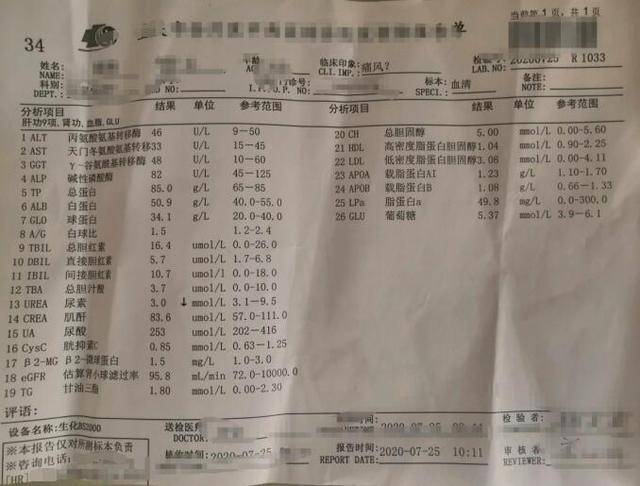 当前第1页，共1页
34
单
姓名:
NAME:
年龄
临床印象: 痛风？
CLI.IMP.:
检验
LAB.NO: 20200725 R 1033
科别:
DEPT.:
诊号:
I.P./O.P. NO:
标本: 血清
SPECI.:
备注:
NOTE:
分析项目 结果 单位 参考范围 分析项目 结果 单位 参考范围
肝功9项,肾功,血脂,GLU
1 ALT 丙氨酸氨基转移酶 46 U/L 9-50
2 AST 天门冬氨酸氨基转移酶 33 U/L 15-45
3 GGT γ-谷氨酰基转移酶 48 U/L 10-60
4 ALP 碱性磷酸酶 82 U/L 45-125
5 TP 总蛋白 85.0 g/L 65-85
6 ALB 白蛋白 50.9 g/L 40.0-55.0
7 GLO 球蛋白 34.1 g/L 20.0-40.0
8 A/G 白球比 1.5 1.2-2.4
9 TBIL 总胆红素 16.4 umol/L 0.0-26.0
10 DBIL 直接胆红素 5.7 umol/L 1.7-6.8
11 IBIL 间接胆红素 10.7 umol/l 0.0-18.0
12 TBA 总胆汁酸 3.7 umol/L 0.0-10.0
13 UREA 尿素 3.0 ↓ mmol/L 3.1-9.5
14 CREA 肌酐 83.6 umol/L 57.0-111.0
15 UA 尿酸 253 umol/L 202-416
16 CysC 胱抑素C 0.85 mmol/L 0.63-1.25
17 β2-MG β2-微球蛋白 1.5 mg/L 1.0-3.0
18 eGFR 估算肾小球滤过率 95.8 mL/min 72.0-10000.0
19 TG 甘油三酯 1.80 mmol/L 0.00-2.30
20 CH 总胆固醇 5.00 mmol/L 0.00-5.60
21 HDL 高密度脂蛋白胆固醇 1.04 mmol/L 0.90-2.25
22 LDL 低密度脂蛋白胆固醇 3.06 mmol/L 0.00-4.11
23 APOA 载脂蛋白AI 1.23 g/L 1.10-1.70
24 APOB 载脂蛋白B 1.08 g/L 0.66-1.33
25 LPa 脂蛋白a 49.8 mg/L 0.0-300.0
26 GLU 葡萄糖 5.37 mmol/L 3.9-6.1
评语:
设备名称:生化BS2000
送检医
DOCTOR:
时间: 2020-07-25
检验者:
※本报告仅对所测标本负责
※咨询电话:
[HR]
报告时间:2020-07-25 10:11
REPORT DATE:
审核者
REVIEWER: